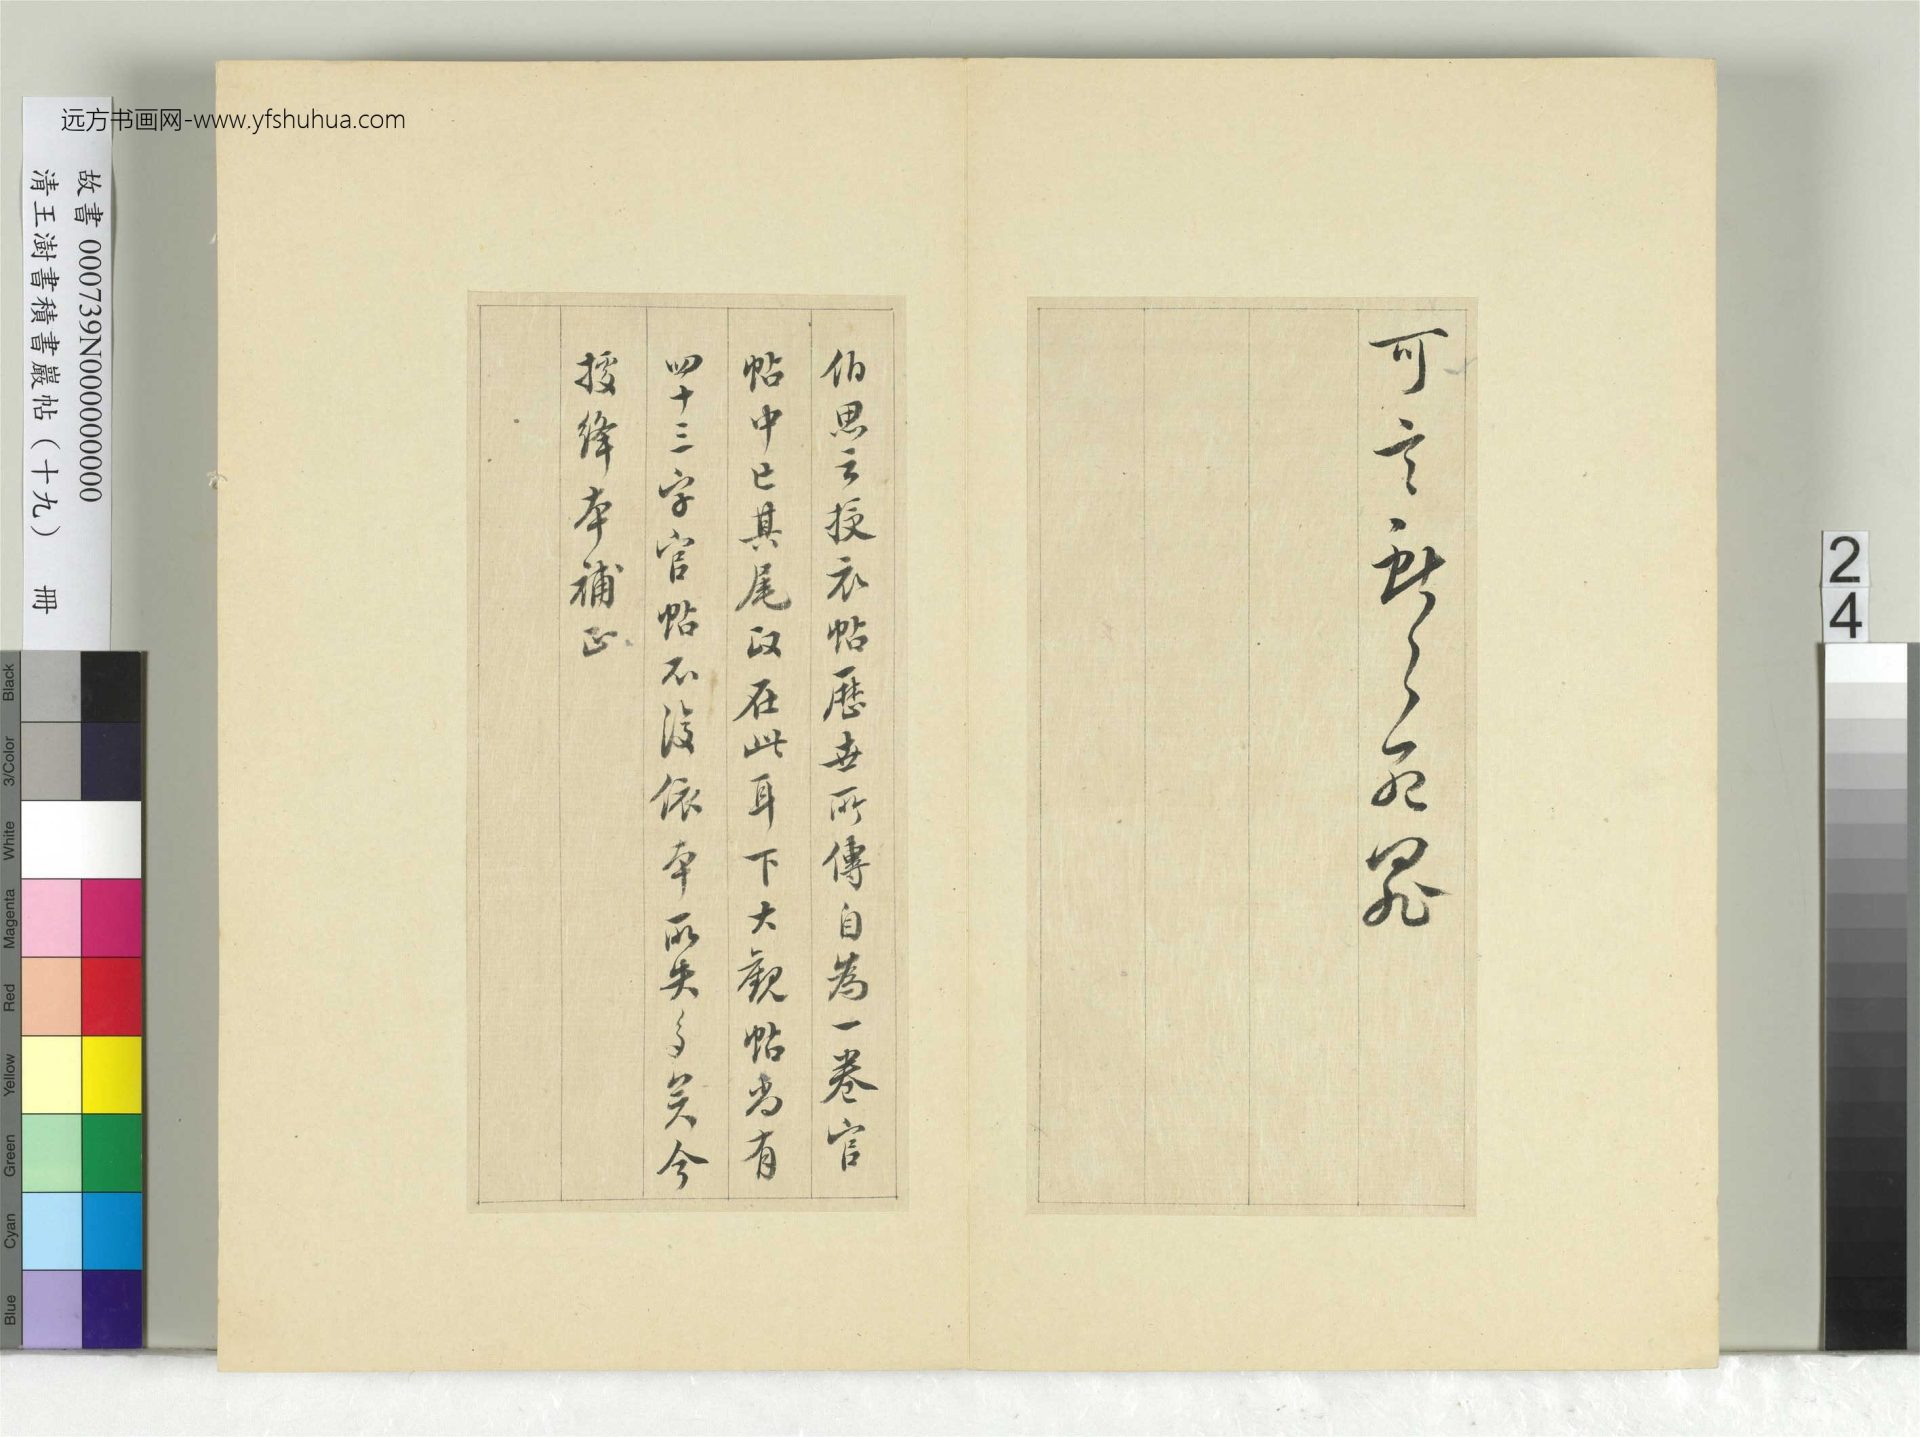 远方书画网-www.yfshuhua.com
故書 000739N000000000
清王澍書積書巖帖（十九） 冊
可言
伯思云授衣帖歷世所傳自為一卷官
帖中已其尾段在此耳下大觀帖尚有
四十三字官帖不復依本所失多矣今
援絳本補正
24
Black
3/Color
White
Magenta
Red
Yellow
Green
Cyan
Blue